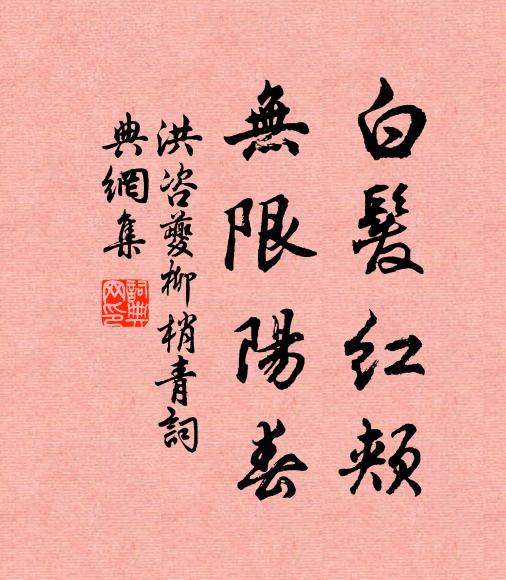 白髮紅頰
無限陽春
洪咨夔柳梢青詞
典網集
詞典網印